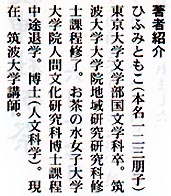 著者紹介
ひふみともこ(本名一二三朋子)
東京大学文学部国文学科卒。筑
波大学大学院地域研究研究科修
士課程修了。お茶の水女子大学
大学院人間文化研究科博士課程
中途退学。博士(人文科学)。現
在、筑波大学講師。